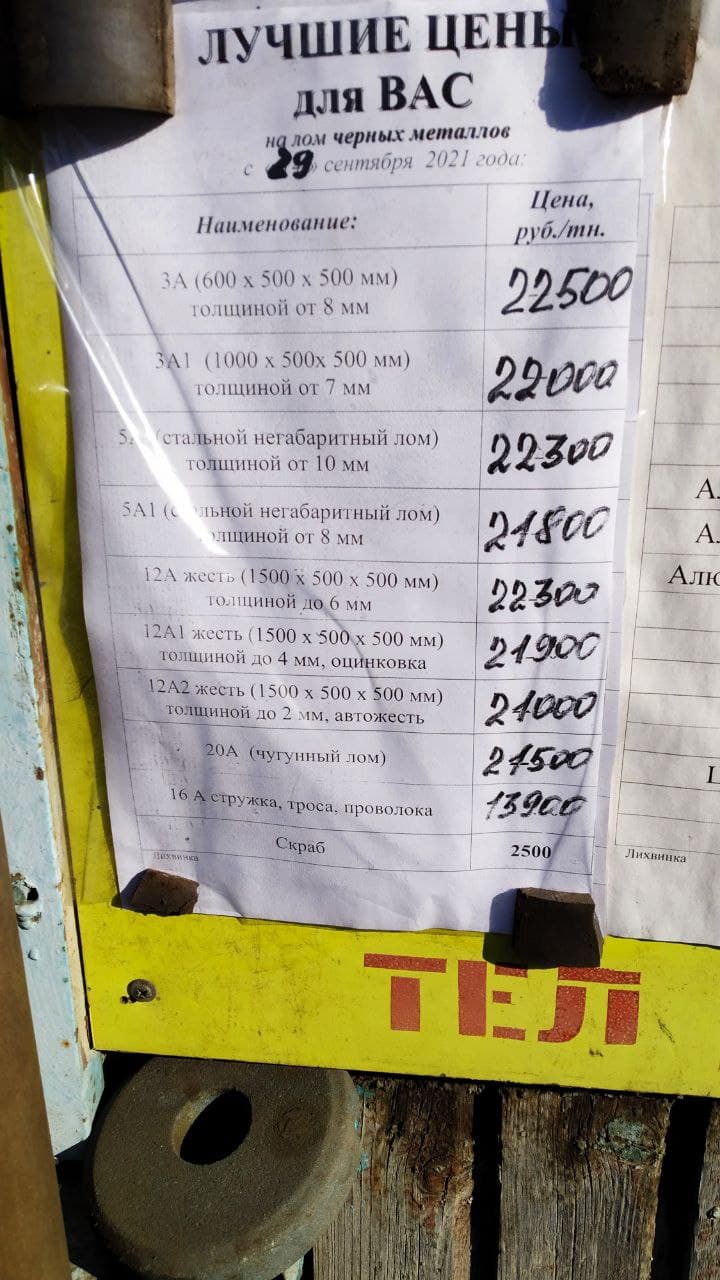 ЛУЧШИЕ ЦЕНЫ
для ВАС
на лом черных металлов
с 29 сентября 2021 года:
Наименование:
Цена,
руб./тн.
3А (600 х 500 х 500 мм)
толщиной от 8 мм
22500
3А1 (1000 х 500х 500 мм)
толщиной от 7 мм
22000
(стальной негабаритный лом)
толщиной от 10 мм
22300
5А1 негабаритный лом)
толщиной от 8 мм
21800
12А жесть (1500 х 500 х 500 мм)
толщиной до 6 мм
22300
12А1 жесть (1500 х 500 х 500 мм)
толщиной до 4 мм, оцинковка
21900
12А2 жесть (1500 х 500 х 500 мм)
толщиной до 2 мм, автожесть
21000
20А (чугунный лом)
21500
16 А стружка, троса, проволока
13900
Скраб
2500
Лихвинка
Лихвинка
ТЕЛ